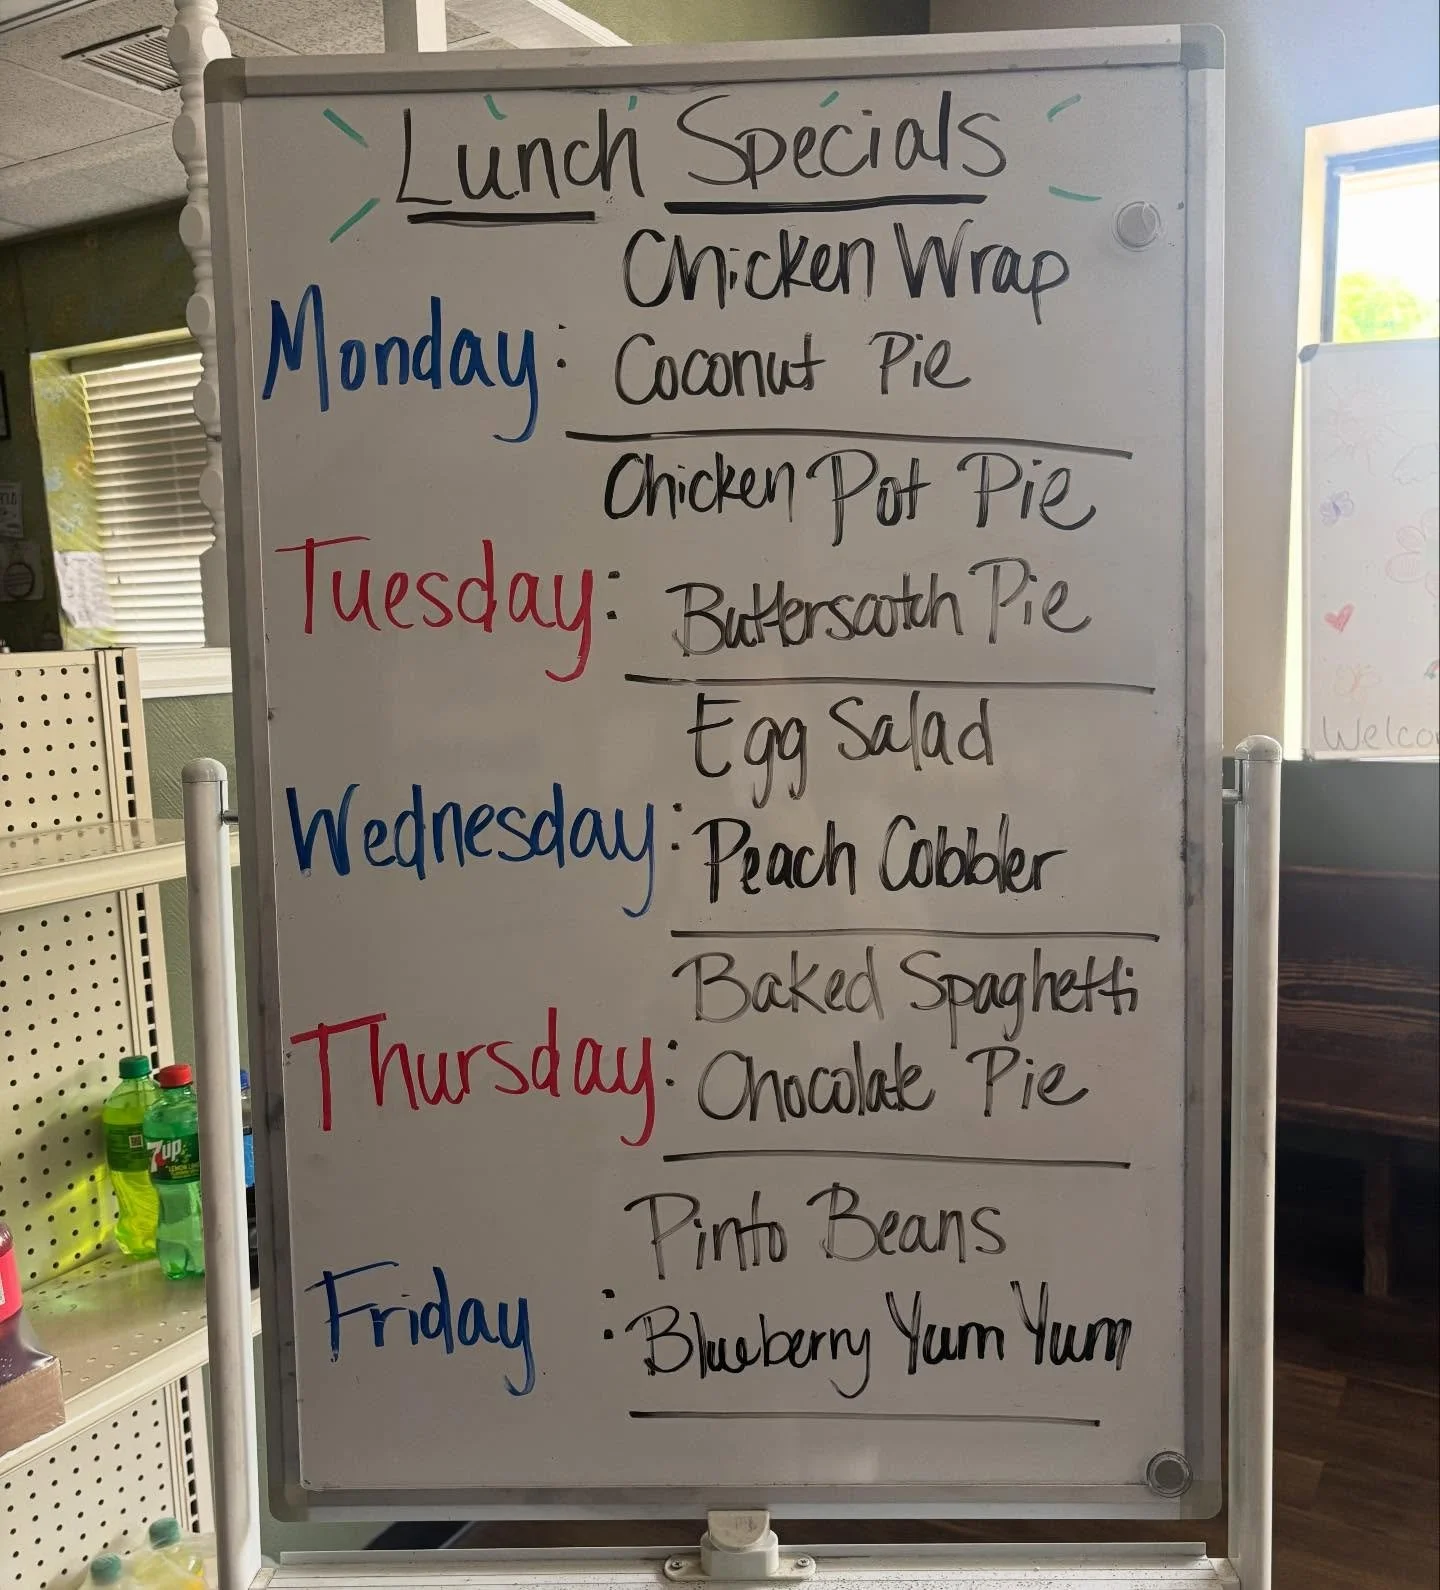 Lunch Specials
Chicken Wrap
Monday:
Coconut Pie
Chicken Pot Pie
Tuesday:
Butterscotch Pie
Egg Salad
Wednesday:
Peach Cobbler
Baked Spaghetti
Thursday:
Chocolate Pie
Pinto Beans
Friday :
Blueberry Yum Yum
7up
Welco